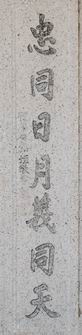 忠同日月義同天